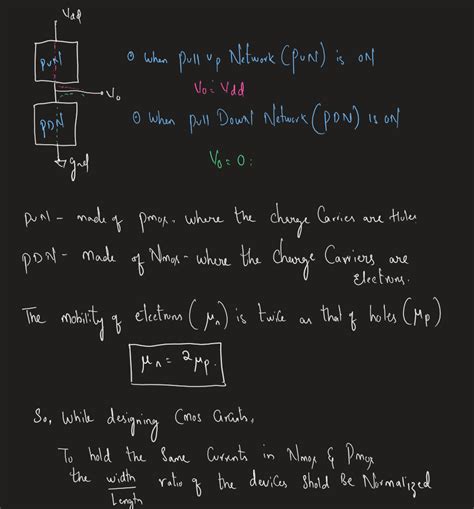 Vdd
PUN
Vo
PDN
gnd
⊙ when pull up Network (PUN) is ON
Vo = Vdd
⊙ when pull Down Network (PDN) is ON
Vo = 0 :
PUN - made of Pmos. where the charge Carries are Holes
PDN - made of Nmos - where the charge Carriers are
Electrons.
The mobility of electrons (μn) is twice as that of holes (μp)
μn = 2μp.
So, While designing Cmos Circuits,
To hold the Same Currents in Nmos & Pmos
the width/Length ratio of the devices Shold Be Normalized